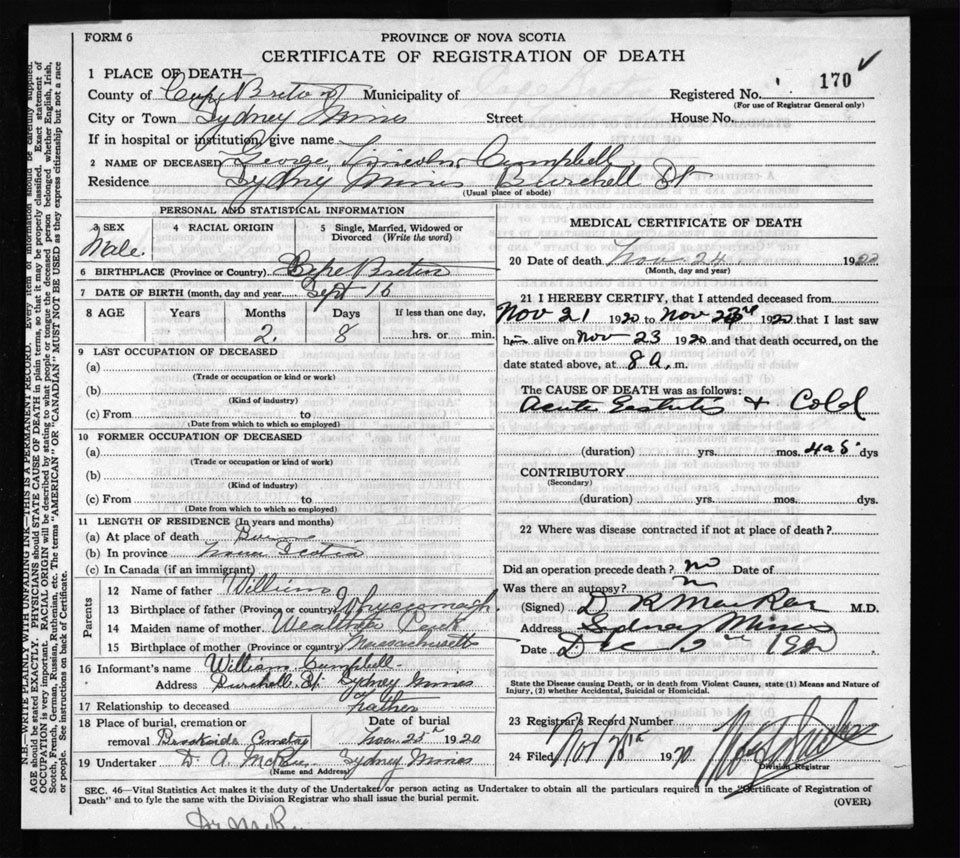 FORM 6
PROVINCE OF NOVA SCOTIA
CERTIFICATE OF REGISTRATION OF DEATH
170 ✓
1 PLACE OF DEATH—
County of Cape Breton Municipality of Registered No.
(For use of Registrar General only)
City or Town Sydney Mines Street House No.
If in hospital or institution, give name
2 NAME OF DECEASED George Lincoln Campbell
Residence Sydney Mines Burchell St
(Usual place of abode)
PERSONAL AND STATISTICAL INFORMATION
3 SEX 4 RACIAL ORIGIN 5 Single, Married, Widowed or Divorced (Write the word)
Male.
6 BIRTHPLACE (Province or Country) Cape Breton
7 DATE OF BIRTH (month, day and year) Sept 16
8 AGE Years Months Days If less than one day,
2. 8 hrs. or min.
9 LAST OCCUPATION OF DECEASED
(a)
(Trade or occupation or kind or work)
(b)
(Kind of industry)
(c) From to
(Date from which to which so employed)
10 FORMER OCCUPATION OF DECEASED
(a)
(Trade or occupation or kind of work)
(b)
(Kind of industry)
(c) From to
(Date from which to which so employed)
11 LENGTH OF RESIDENCE (In years and months)
(a) At place of death
(b) In province Nova Scotia
(c) In Canada (if an immigrant)
Parents
12 Name of father William
13 Birthplace of father (Province or country) Whycocomagh
14 Maiden name of mother
15 Birthplace of mother (Province or country) Massachusetts
16 Informant's name William Campbell
Address Burchell St Sydney Mines
17 Relationship to deceased father
18 Place of burial, cremation or removal Brookside Cemetery
Date of burial Nov 25th 1920
19 Undertaker D. A. McRae Sydney Mines
(Name and Address)
MEDICAL CERTIFICATE OF DEATH
20 Date of death Nov 24 1920
(Month, day and year)
21 I HEREBY CERTIFY, that I attended deceased from
Nov 21 1920 to Nov 23rd 1920 that I last saw
h alive on Nov 23 1920 and that death occurred, on the
date stated above, at 8 a, m.
The CAUSE OF DEATH was as follows:
Acute Gastritis + Cold
(duration) yrs. mos. dys
CONTRIBUTORY
(Secondary)
(duration) yrs. mos. dys.
22 Where was disease contracted if not at place of death?
Did an operation precede death? no Date of
Was there an autopsy? no
(Signed) M.D.
Address Sydney Mines
Date Dec 1920
State the Disease causing Death, or in death from Violent Causes, state (1) Means and Nature of
Injury, (2) whether Accidental, Suicidal or Homicidal.
23 Registrar's Record Number
24 Filed Nov
Division Registrar
SEC. 46—Vital Statistics Act makes it the duty of the Undertaker or person acting as Undertaker to obtain all the particulars required in the "Certificate of Registration of
Death" and to fyle the same with the Division Registrar who shall issue the burial permit.
(OVER)
N.B.—WRITE PLAINLY WITH UNFADING INK—THIS IS A PERMANENT RECORD. Every item of information should be carefully supplied.
AGE should be stated EXACTLY. PHYSICIANS should STATE CAUSE OF DEATH in plain terms, so that it may be properly classified. Exact statement of
OCCUPATION is very important. RACIAL ORIGIN will be described by stating to what people or tongue the deceased person belonged whether English, Irish,
Scotch, French, German, Russian, Ruthenian, etc. The terms "AMERICAN" OR "CANADIAN" MUST NOT BE USED as they express citizenship but not a race
or people. See instructions on back of Certificate.